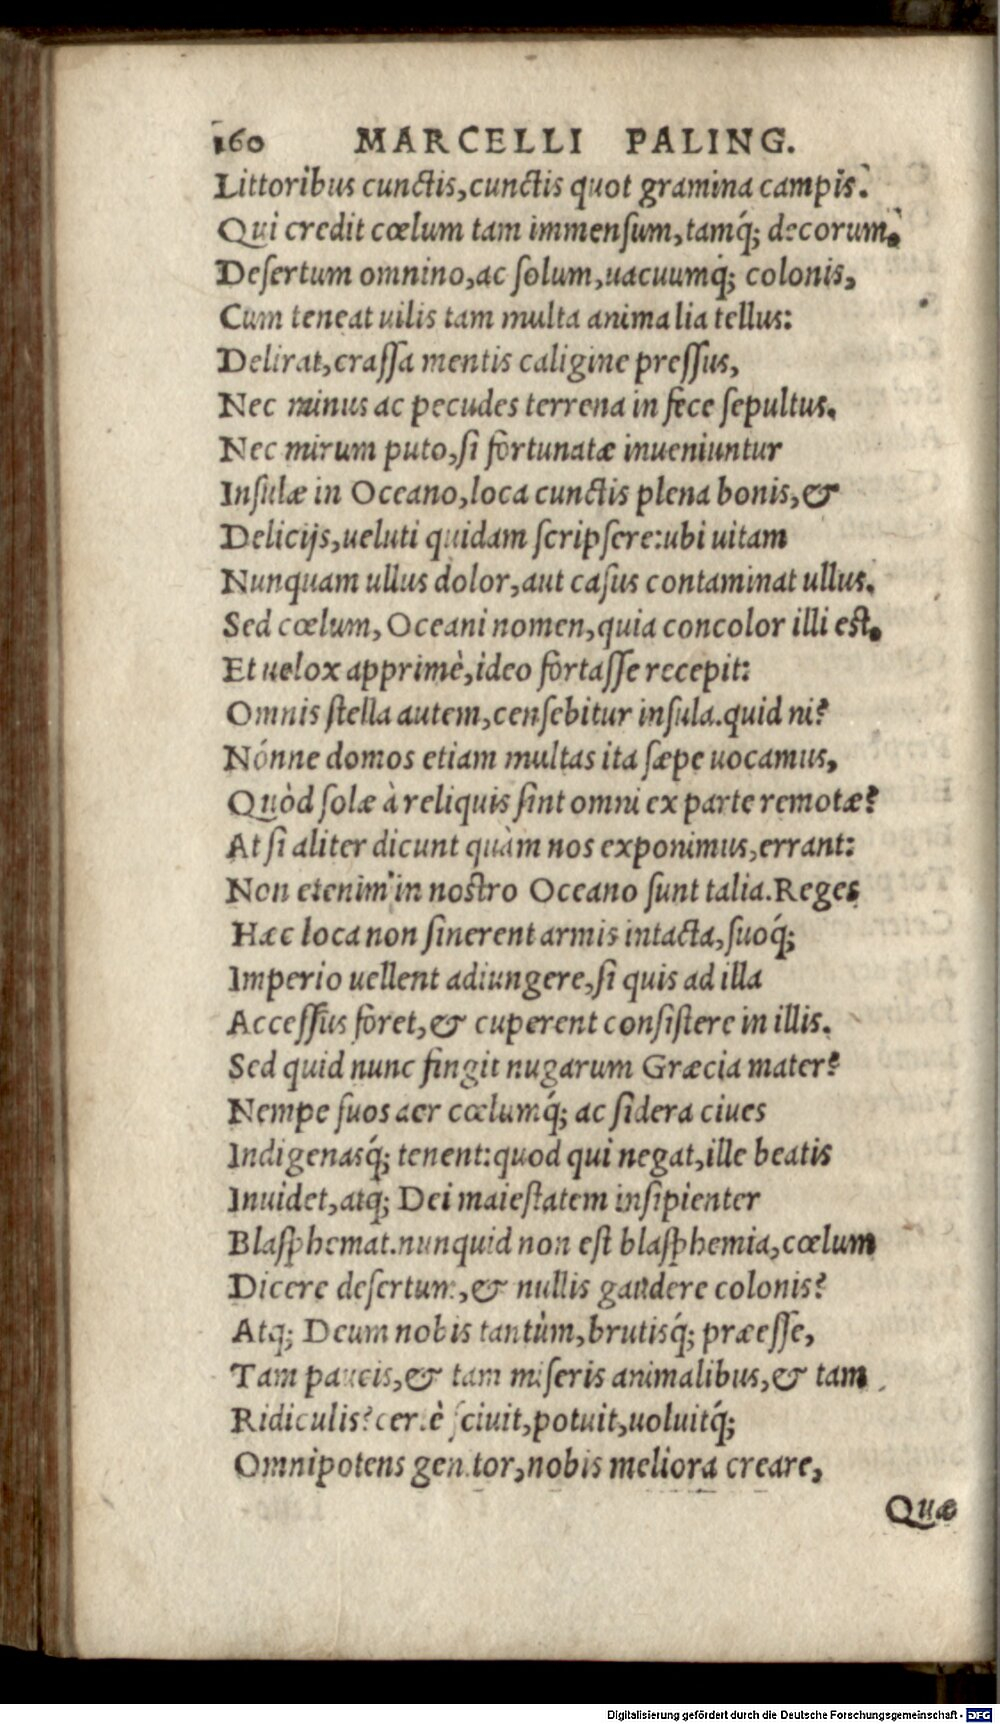 160 MARCELLI PALING.
Littoribus cunctis, cunctis quot gramina campis.
Qui credit cœlum tam immensum, tamq́; decorum.
Desertum omnino, ac solum, uacuumq́; colonis,
Cum teneat uilis tam multa animalia tellus:
Delirat, crassa mentis caligine pressus,
Nec minus ac pecudes terrena in fece sepultus.
Nec mirum puto, si fortunatæ inueniuntur
Insulæ in Oceano, loca cunctis plena bonis, &
Delicijs, ueluti quidam scripsere: ubi uitam
Nunquam ullus dolor, aut casus contaminat ullus.
Sed cœlum, Oceani nomen, quia concolor illi est.
Et uelox apprimè, ideo fortasse recepit:
Omnis stella autem, censebitur insula. quid ni?
Nónne domos etiam multas ita sæpe uocamus,
Quòd solæ à reliquis sint omni ex parte remotæ?
At si aliter dicunt quàm nos exponimus, errant:
Non etenim in nostro Oceano sunt talia. Reges
Hæc loca non sinerent armis intacta, suoq́;
Imperio uellent adiungere, si quis ad illa
Accessus foret, & cuperent consistere in illis.
Sed quid nunc fingit nugarum Græcia mater?
Nempe suos aer cœlumq́; ac sidera ciues
Indigenasq́; tenent: quod qui negat, ille beatis
Inuidet, atq; Dei maiestatem insipienter
Blasphemat. nunquid non est blasphemia, cœlum
Dicere desertum, & nullis gaudere colonis?
Atq; Deum nobis tantùm, brutisq́; præesse,
Tam paucis, & tam miseris animalibus, & tam
Ridiculis? certè sciuit, potuit, uoluitq́;
Omnipotens genitor, nobis meliora creare,
Quæ
Digitalisierung gefördert durch die Deutsche Forschungsgemeinschaft - DFG